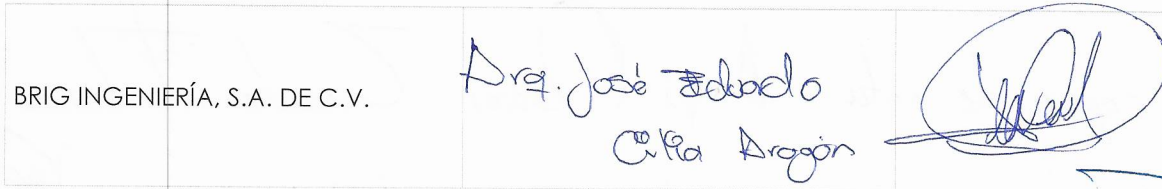 BRIG INGENIERÍA, S.A. DE C.V.
Arq. José Eduardo
Aragón